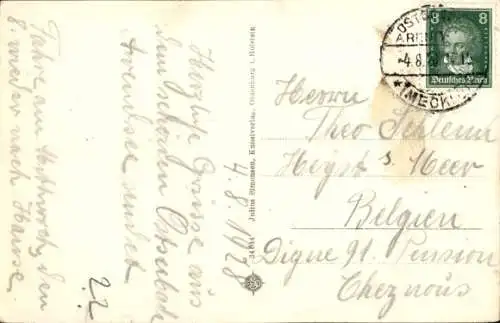 Herzliche Grüsse aus
dem schönen Ostseebad
Arendsee sendet
4.8.1928
Fahre am Mittwoch, den
8. weiter nach Hause.
Julius Simonsen, Kunstverlag, Oldenburg i. Holstein
8 8
Deutsches Reich
OSTSEEBAD
AREND
-4.8.
*(MECKL
Herrn
Theo
Heyst s. Meer
Belgien
Digue 91. Pension
Chez nous